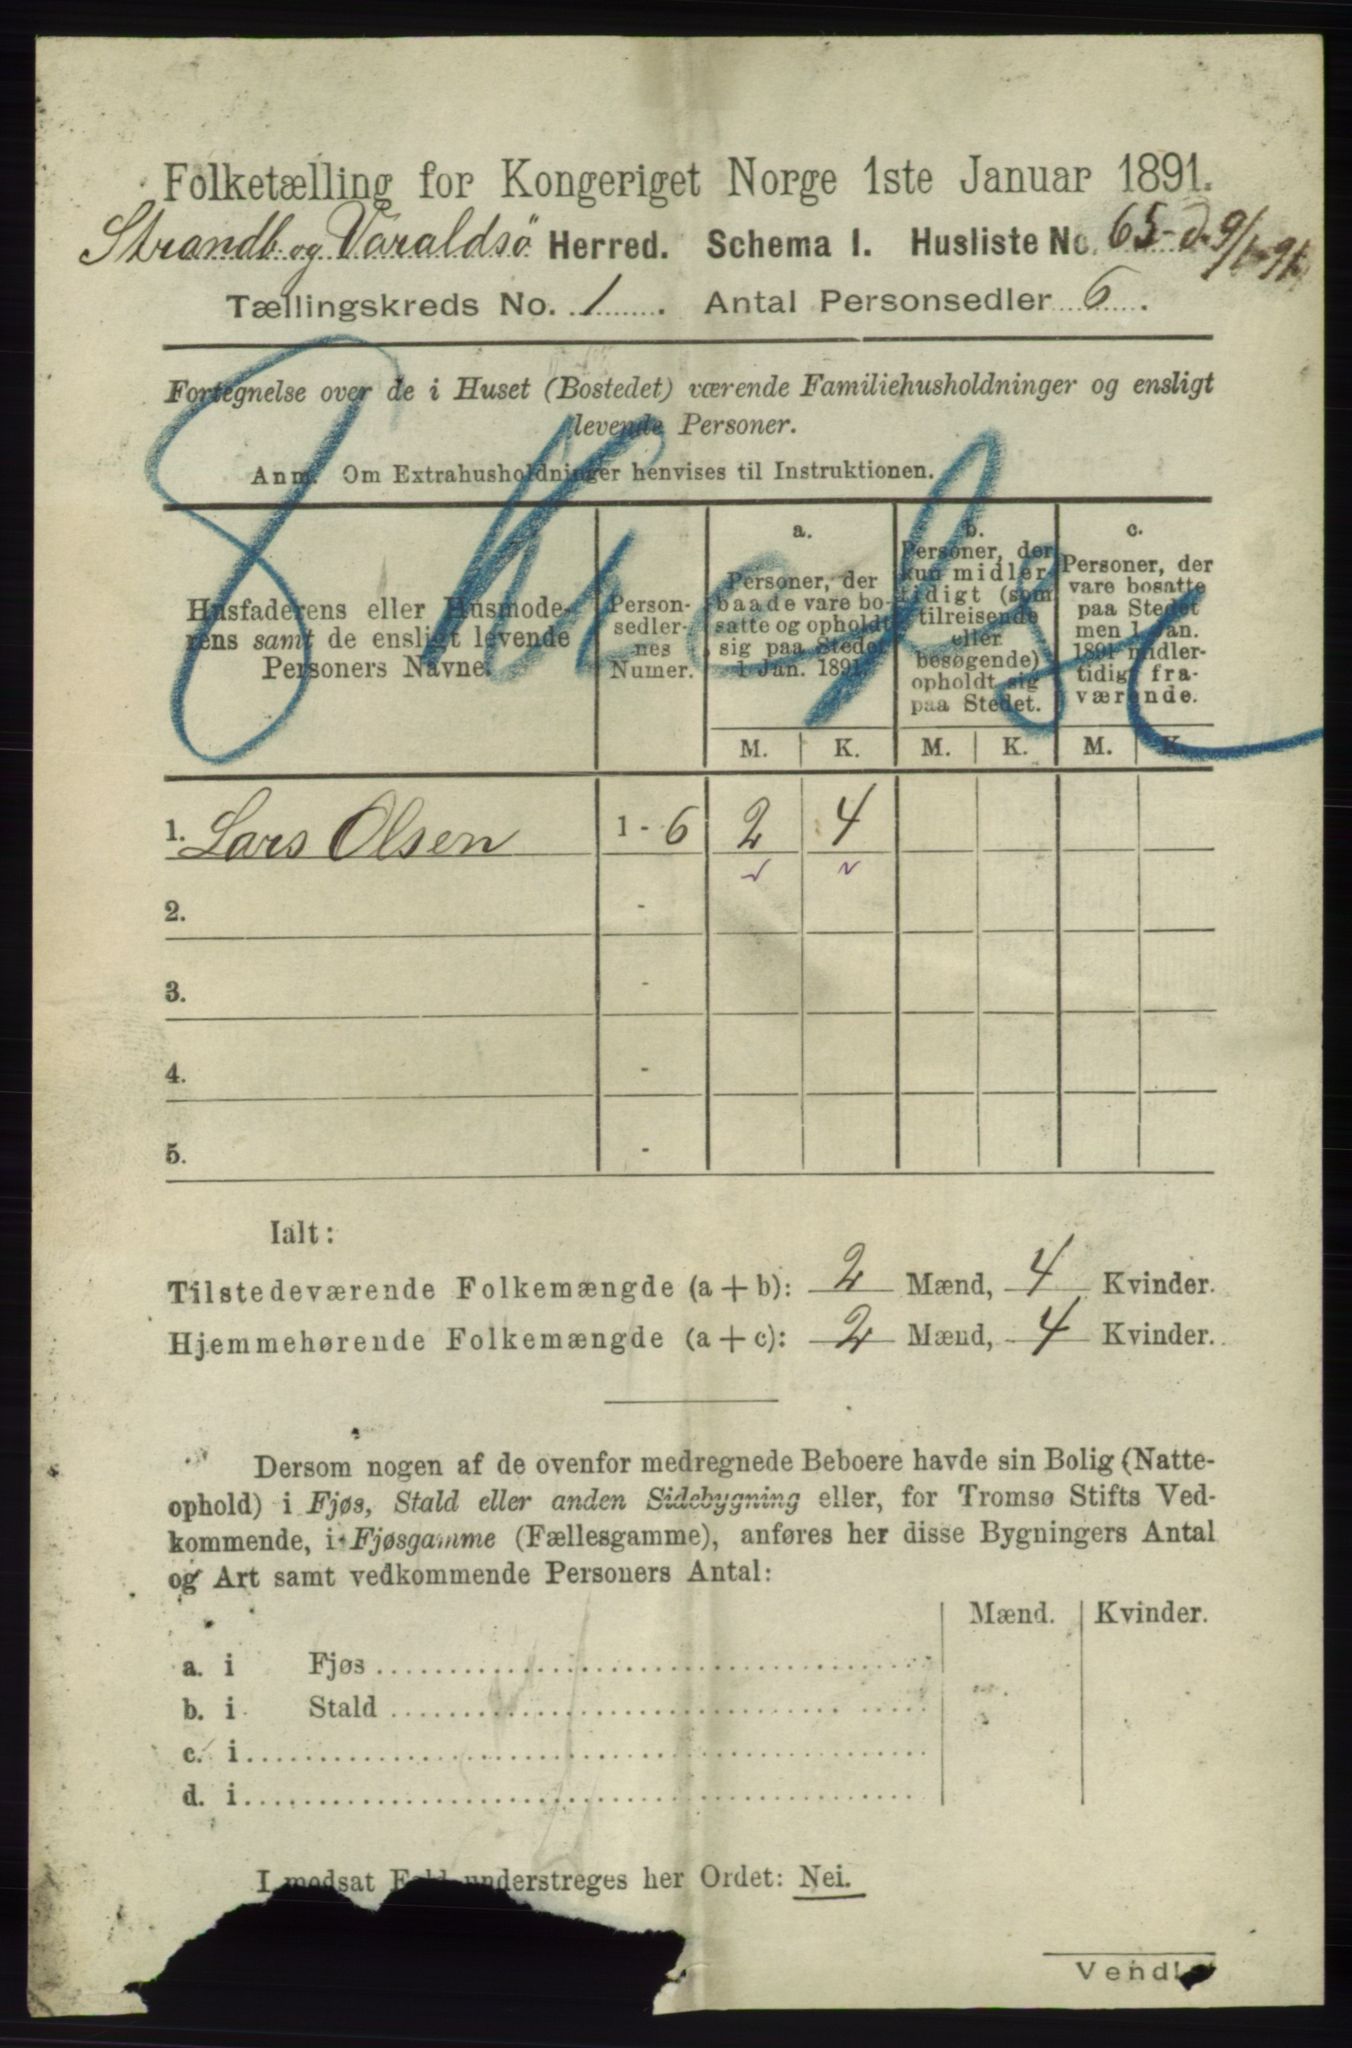 Folketælling for Kongeriget Norge 1ste Januar 1891.
Strandb. og Varaldsö Herred. Schema I. Husliste No. 65 9/1 91
Tællingskreds No. 1. Antal Personsedler 6.
Fortegnelse over de i Huset (Bostedet) værende Familiehusholdninger og ensligt
levende Personer.
Anm. Om Extrahusholdninger henvises til Instruktionen.
Husfaderens eller Husmode-
rens samt de ensligt levende
Personers Navne.
Person-
sedler-
nes
Numer.
a.
Personer, der
baade vare bo-
satte og opholdt
sig paa Stedet
1 Jan. 1891.
b.
Personer, der
kun midler-
tidigt (som
tilreisende
eller
besøgende)
opholdt sig
paa Stedet.
c.
Personer, der
vare bosatte
paa Stedet
men 1 Jan.
1891 midler-
tidig fra-
værende.
M. K. M. K. M. K.
1. Lars Olsen 1 - 6 2 4
2. -
3. -
4. -
5. -
Ialt:
Tilstedeværende Folkemængde (a + b): 2 Mænd, 4 Kvinder.
Hjemmehørende Folkemængde (a + c): 2 Mænd, 4 Kvinder.
Dersom nogen af de ovenfor medregnede Beboere havde sin Bolig (Natte-
ophold) i Fjøs, Stald eller anden Sidebygning eller, for Tromsø Stifts Ved-
kommende, i Fjøsgamme (Fællesgamme), anføres her disse Bygningers Antal
og Art samt vedkommende Personers Antal:
Mænd. Kvinder.
a. i Fjøs
b. i Stald
c. i
d. i
I modsat Fald understreges her Ordet: Nei.
Vend!